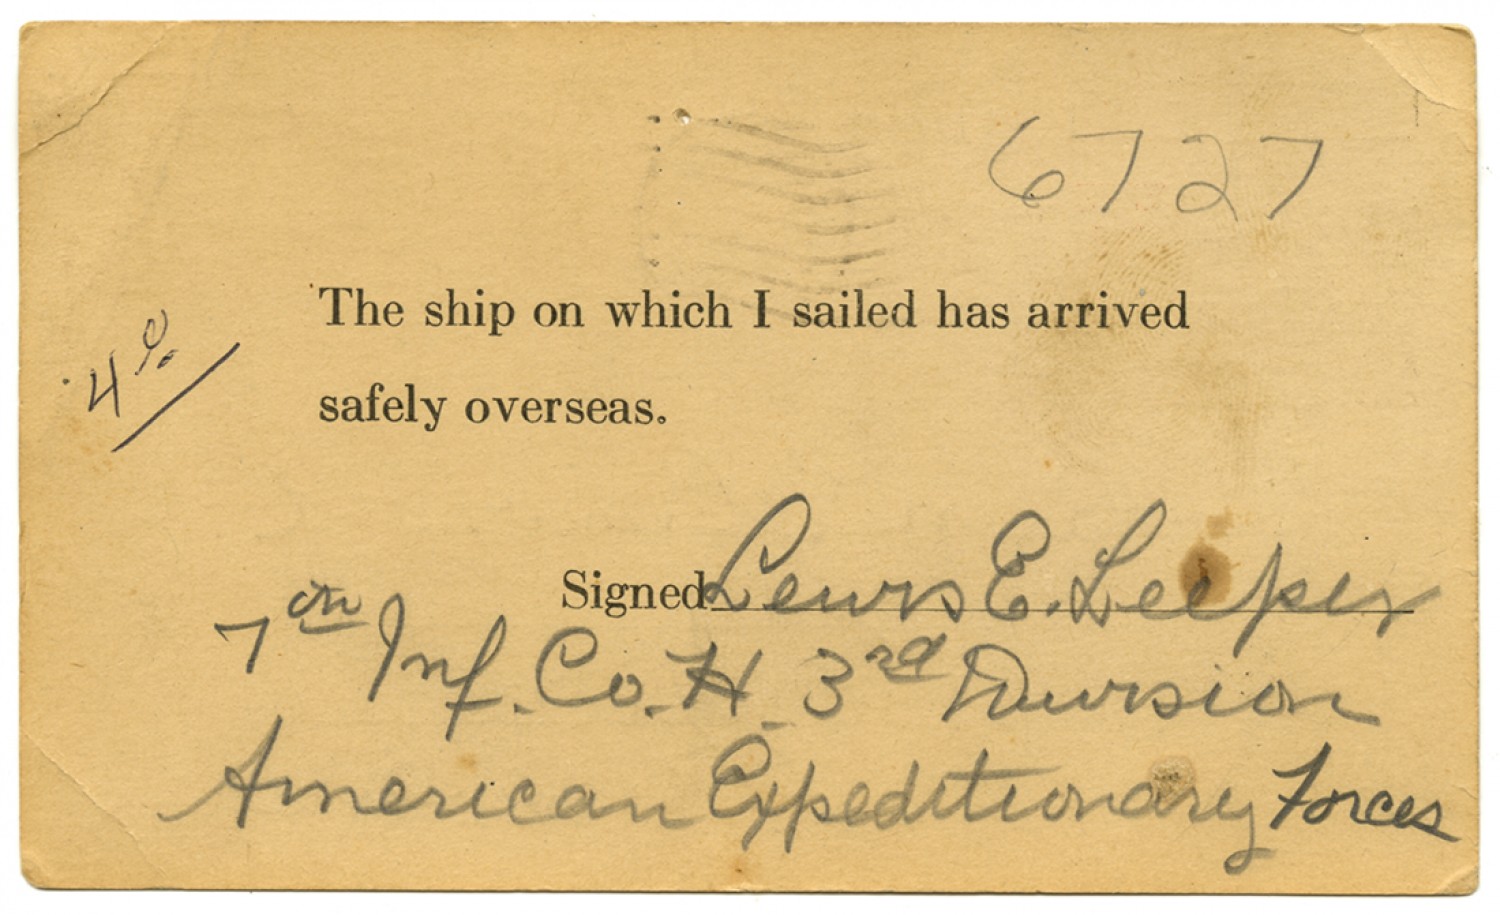 6727
The ship on which I sailed has arrived
4e
safely overseas.
Signed Lewis E. Leeper
7th Inf. Co. H. 3rd Division
American Expeditionary Forces